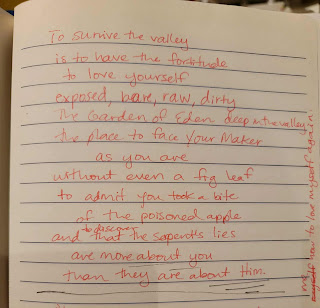 To survive the valley
is to have the fortitude
to love yourself
exposed, bare, raw, dirty
The Garden of Eden deep in the valley
the place to face your Maker
as you are
without even a fig leaf
to admit you took a bite
of the poisoned apple
to discover
and that the serpents lies
are more about you
than they are about Him.
how to love myself again.